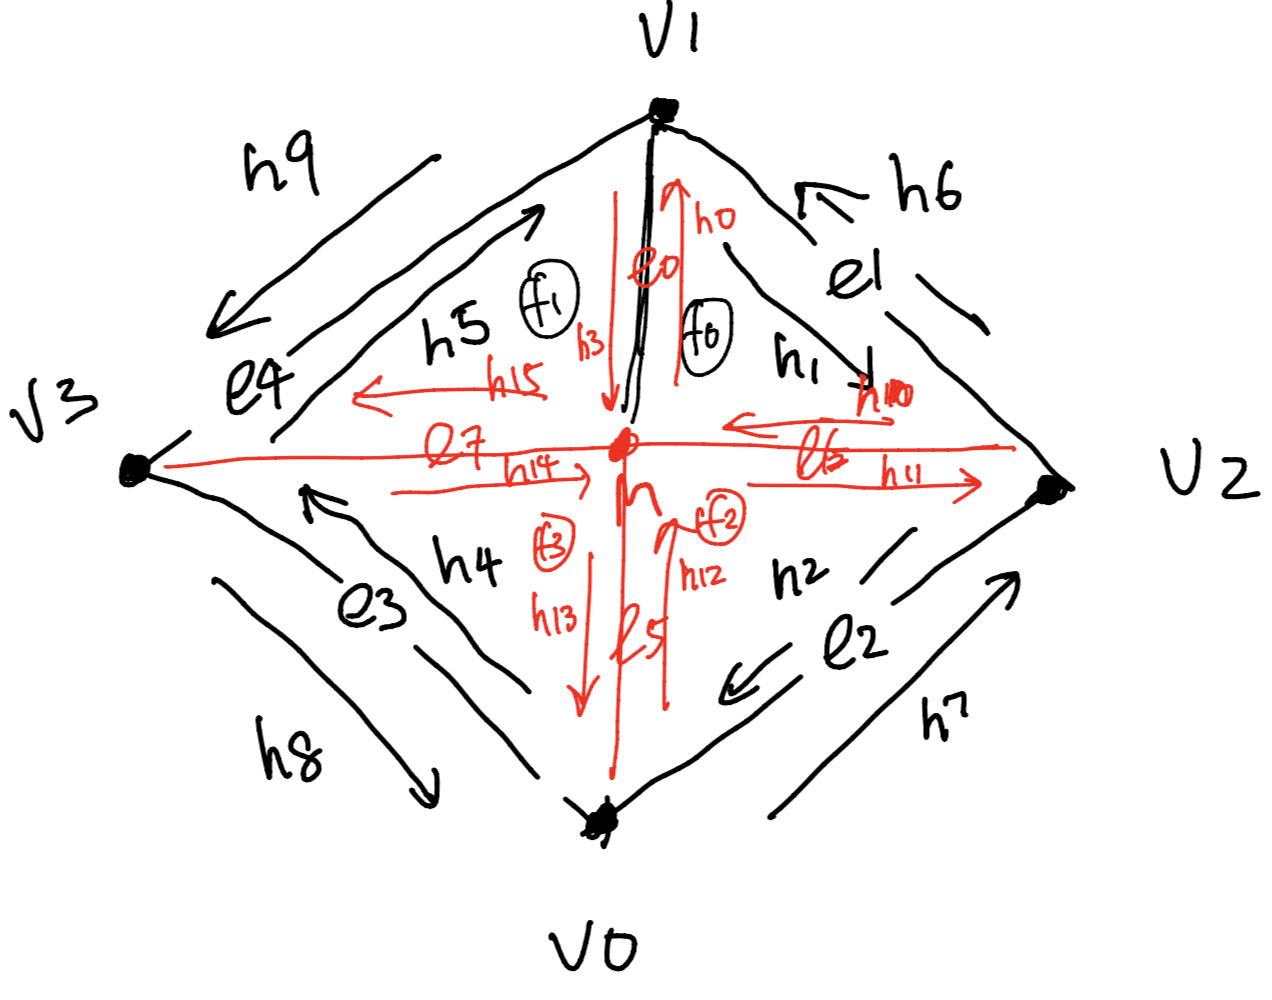 v1
h9
h6
h0
e0
e1
f1
f0
h5
h3
h1
e4
h15
h10
v3
e7
e6
h14
h11
v2
m
f2
f3
h4
h12
h2
h13
e3
e5
e2
h8
h7
v0